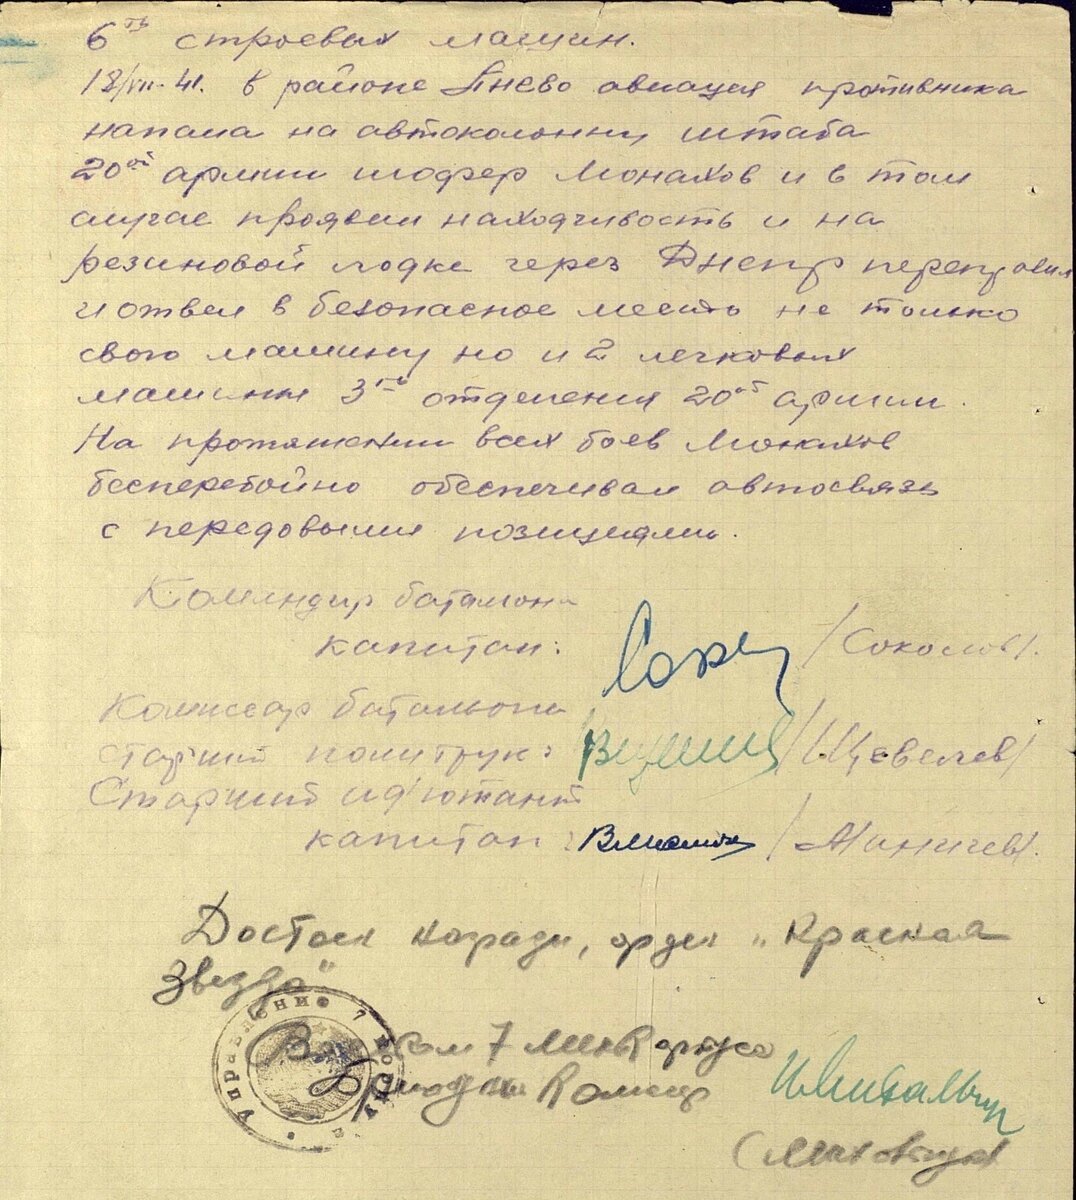 6ть строевых машин.
18/VII-41. в районе Пнево авиация противника
напала на автоколонну штаба
20ой армии шофер Монахов и в том
случае проявил находчивость и на
резиновой лодке через Днепр переправил
и отвел в безопасное место не только
свою машину но и 2 легковых
машины 3го отделения 20ой армии.
На протяжении всех боев Монахов
бесперебойно обеспечивал автосвязь
с передовыми позициями.
Командир батальона
капитан: /Соколов/.
Комиссар батальона
старший политрук: /Щевелев/
Старший ад'ютант
капитан: /Миничев/.
Достоен награды, орден „Красная
Звезда"
Управление 7
ком 7 мехкорпуса